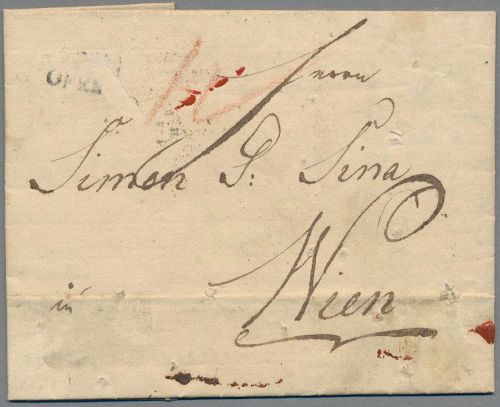 Herrn
OFEN
Simon G: Sina
in Wien